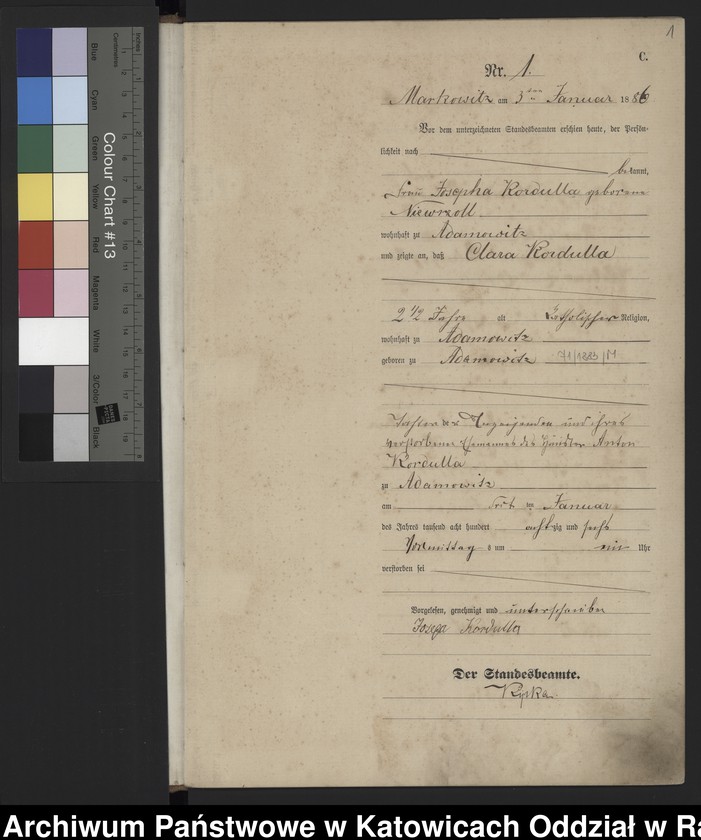 1
C.
Nr. 1.
Markowitz am 3ten Januar 1886
Vor dem unterzeichneten Standesbeamten erschien heute, der Persön-
lichkeit nach
bekannt,
Frau Josepha Kordulla geborene
Niewrzoll
wohnhaft zu Adamowitz
und zeigte an, daß Clara Kordulla
2 1/2 Jahre alt katholischer Religion,
wohnhaft zu Adamowitz
geboren zu Adamowitz 71/1883/M
Tochter der Anzeigenden und ihres
verstorbenen Ehemannes des Häusler Anton
Kordulla
zu Adamowitz
am ten Januar
des Jahres tausend acht hundert achtzig und sechs
Vormittag s um ein Uhr
verstorben sei
Vorgelesen, genehmigt und unterschrieben
Josefa Kordulla
Der Standesbeamte.
Colour Chart #13
Blue
Cyan
Green
Yellow
Red
Magenta
White
3/Color
Black
Centimetres
Inches
Archiwum Państwowe w Katowicach Oddział w Ra